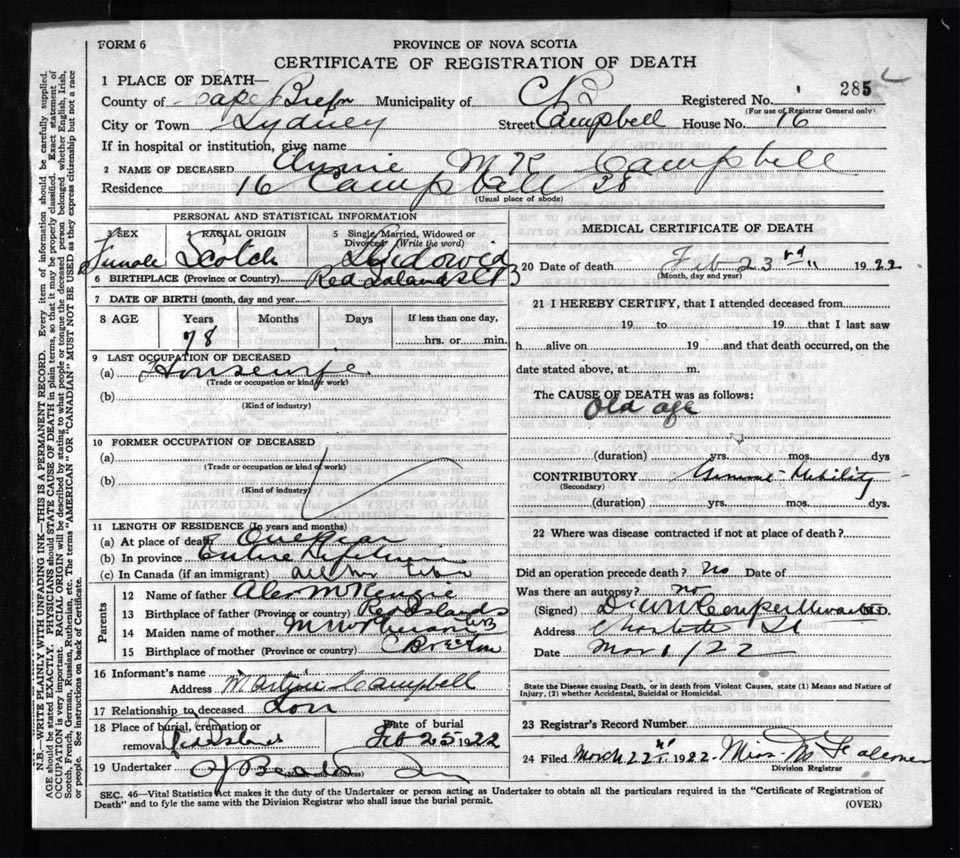 FORM 6
PROVINCE OF NOVA SCOTIA
CERTIFICATE OF REGISTRATION OF DEATH
1 PLACE OF DEATH—
County of Cape Breton Municipality of CB Registered No. 285
(For use of Registrar General only)
City or Town Sydney Street Campbell House No. 16
If in hospital or institution, give name
2 NAME OF DECEASED Annie McK Campbell
Residence 16 Campbell St
(Usual place of abode)
PERSONAL AND STATISTICAL INFORMATION
3 SEX 4 RACIAL ORIGIN 5 Single, Married, Widowed or Divorced (Write the word)
Female Scotch Widowed
6 BIRTHPLACE (Province or Country) Red Islands CB
7 DATE OF BIRTH (month, day and year)
8 AGE Years Months Days If less than one day,
78 hrs. or min.
9 LAST OCCUPATION OF DECEASED
(a) Housewife
(Trade or occupation or kind of work)
(b)
(Kind of industry)
10 FORMER OCCUPATION OF DECEASED
(a)
(Trade or occupation or kind of work)
(b)
(Kind of industry)
11 LENGTH OF RESIDENCE (In years and months)
(a) At place of death One year
(b) In province Entire Lifetime
(c) In Canada (if an immigrant) all her
Parents
12 Name of father Alex McKenzie
13 Birthplace of father (Province or country) Red Islands CB
14 Maiden name of mother
15 Birthplace of mother (Province or country) C Breton
16 Informant's name
Address Campbell
17 Relationship to deceased Son
18 Place of burial, cremation or removal Date of burial
Feb 25 1922
19 Undertaker
(Name and address)
MEDICAL CERTIFICATE OF DEATH
20 Date of death Feb 23rd 1922
(Month, day and year)
21 I HEREBY CERTIFY, that I attended deceased from
19 to 19 that I last saw
h alive on 19 and that death occurred, on the
date stated above, at m.
The CAUSE OF DEATH was as follows:
Old age
(duration) yrs. mos. dys
CONTRIBUTORY Debility
(Secondary)
(duration) yrs. mos. dys.
22 Where was disease contracted if not at place of death?
Did an operation precede death? No Date of
Was there an autopsy? no
(Signed) M.D.
Address Charlotte St
Date Mar 1/22
State the Disease causing Death, or in death from Violent Causes, state (1) Means and Nature of
Injury, (2) whether Accidental, Suicidal or Homicidal.
23 Registrar's Record Number
24 Filed March 22nd 1922. Miss
Division Registrar
SEC. 46—Vital Statistics Act makes it the duty of the Undertaker or person acting as Undertaker to obtain all the particulars required in the "Certificate of Registration of
Death" and to fyle the same with the Division Registrar who shall issue the burial permit.
(OVER)
N.B.—WRITE PLAINLY WITH UNFADING INK—THIS IS A PERMANENT RECORD. Every item of information should be carefully supplied.
AGE should be stated EXACTLY. PHYSICIANS should STATE CAUSE OF DEATH in plain terms, so that it may be properly classified. Exact statement of
OCCUPATION is very important. RACIAL ORIGIN will be described by stating to what people or tongue the deceased person belonged whether English, Irish,
Scotch, French, German, Russian, Ruthenian, etc. The terms "AMERICAN" OR "CANADIAN" MUST NOT BE USED as they express citizenship but not a race
or people. See instructions on back of Certificate.